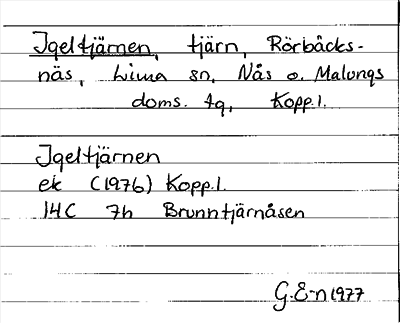 Igeltjärnen, tjärn, Rörbäcks-
näs, Lima sn, Nås o. Malungs
doms. tg, Kopp.l.
Igeltjärnen
ek (1976) Kopp.l.
14C 7h Brunntjärnåsen
G.E-n 1977